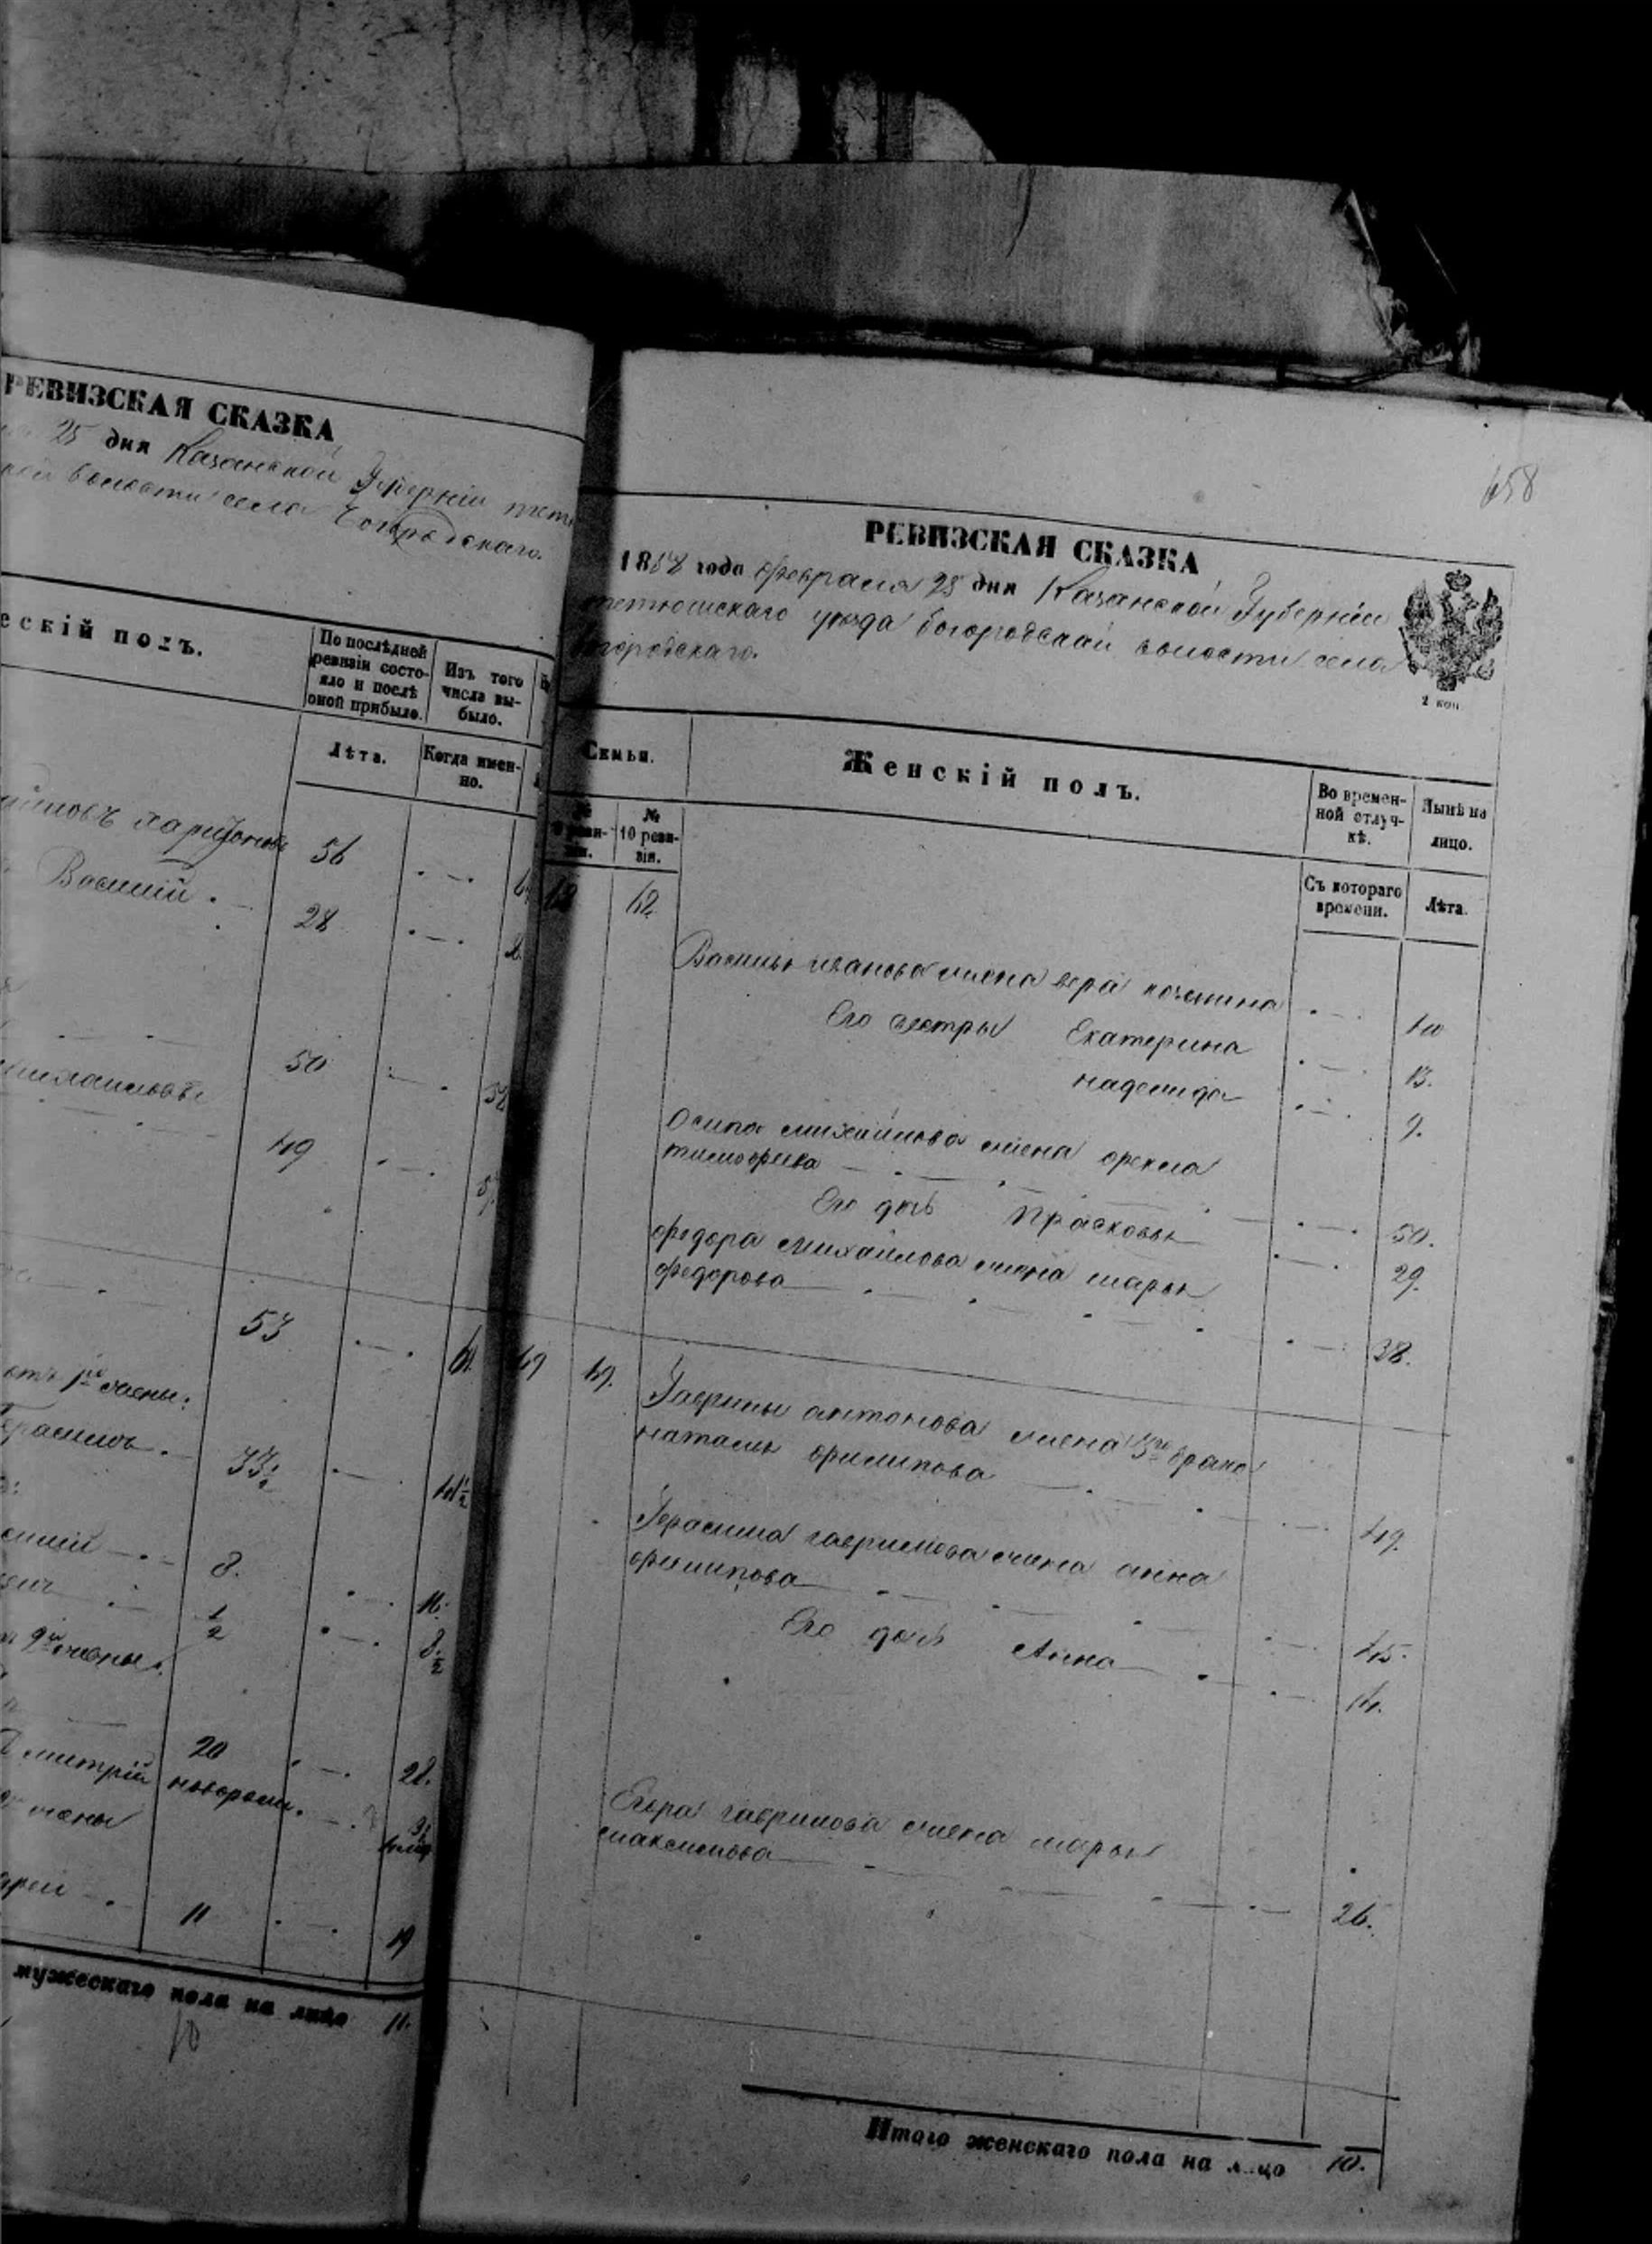 РЕВИЗСКАЯ СКАЗКА
25 дня Казанской Губерніи тетю
волости села Богородскаго.
ескій полъ.
По послѣдней
ревизіи состо-
яло и послѣ
оной прибыло.
Изъ того
числа вы-
было.
Лѣта.
Когда имен-
но.
Харитонова 56
Василій. 28
50
Михайловъ
49
53
отъ 1й жены:
Герасимъ. 33½ 41½
силій 8. 16.
½ 8½
2й жены.
20 28.
Дмитрій новорожд.
жены
11 19
мужескаго пола на лицо 11.
10
658
РЕВИЗСКАЯ СКАЗКА
1858 года февраля 25 дня Казанской Губерніи
тетюшскаго уѣзда богородской волости села
богородскаго.
2 коп
Семья.
Женскій полъ.
Во времен-
ной отлуч-
кѣ.
Нынѣ на
лицо.
№
ревизіи.
№
10 реви-
зіи.
Съ котораго
времени.
Лѣта.
Василья иванова жена вера
Его сестры Екатерина 13.
надежда 9.
Осипа михайлова жена фекла
тимофеива 50.
Его дочь Прасковья 29.
федора Михайлова жена марья
федорова 38.
49 49.
Гаврилы антонова жена 3го брака
наталья филипова 49.
Герасима гаврилова жена анна
филипова 45.
Его дочь Анна 14.
Егора гаврилова жена марья
максимова 26.
Итого женскаго пола на лицо 10.